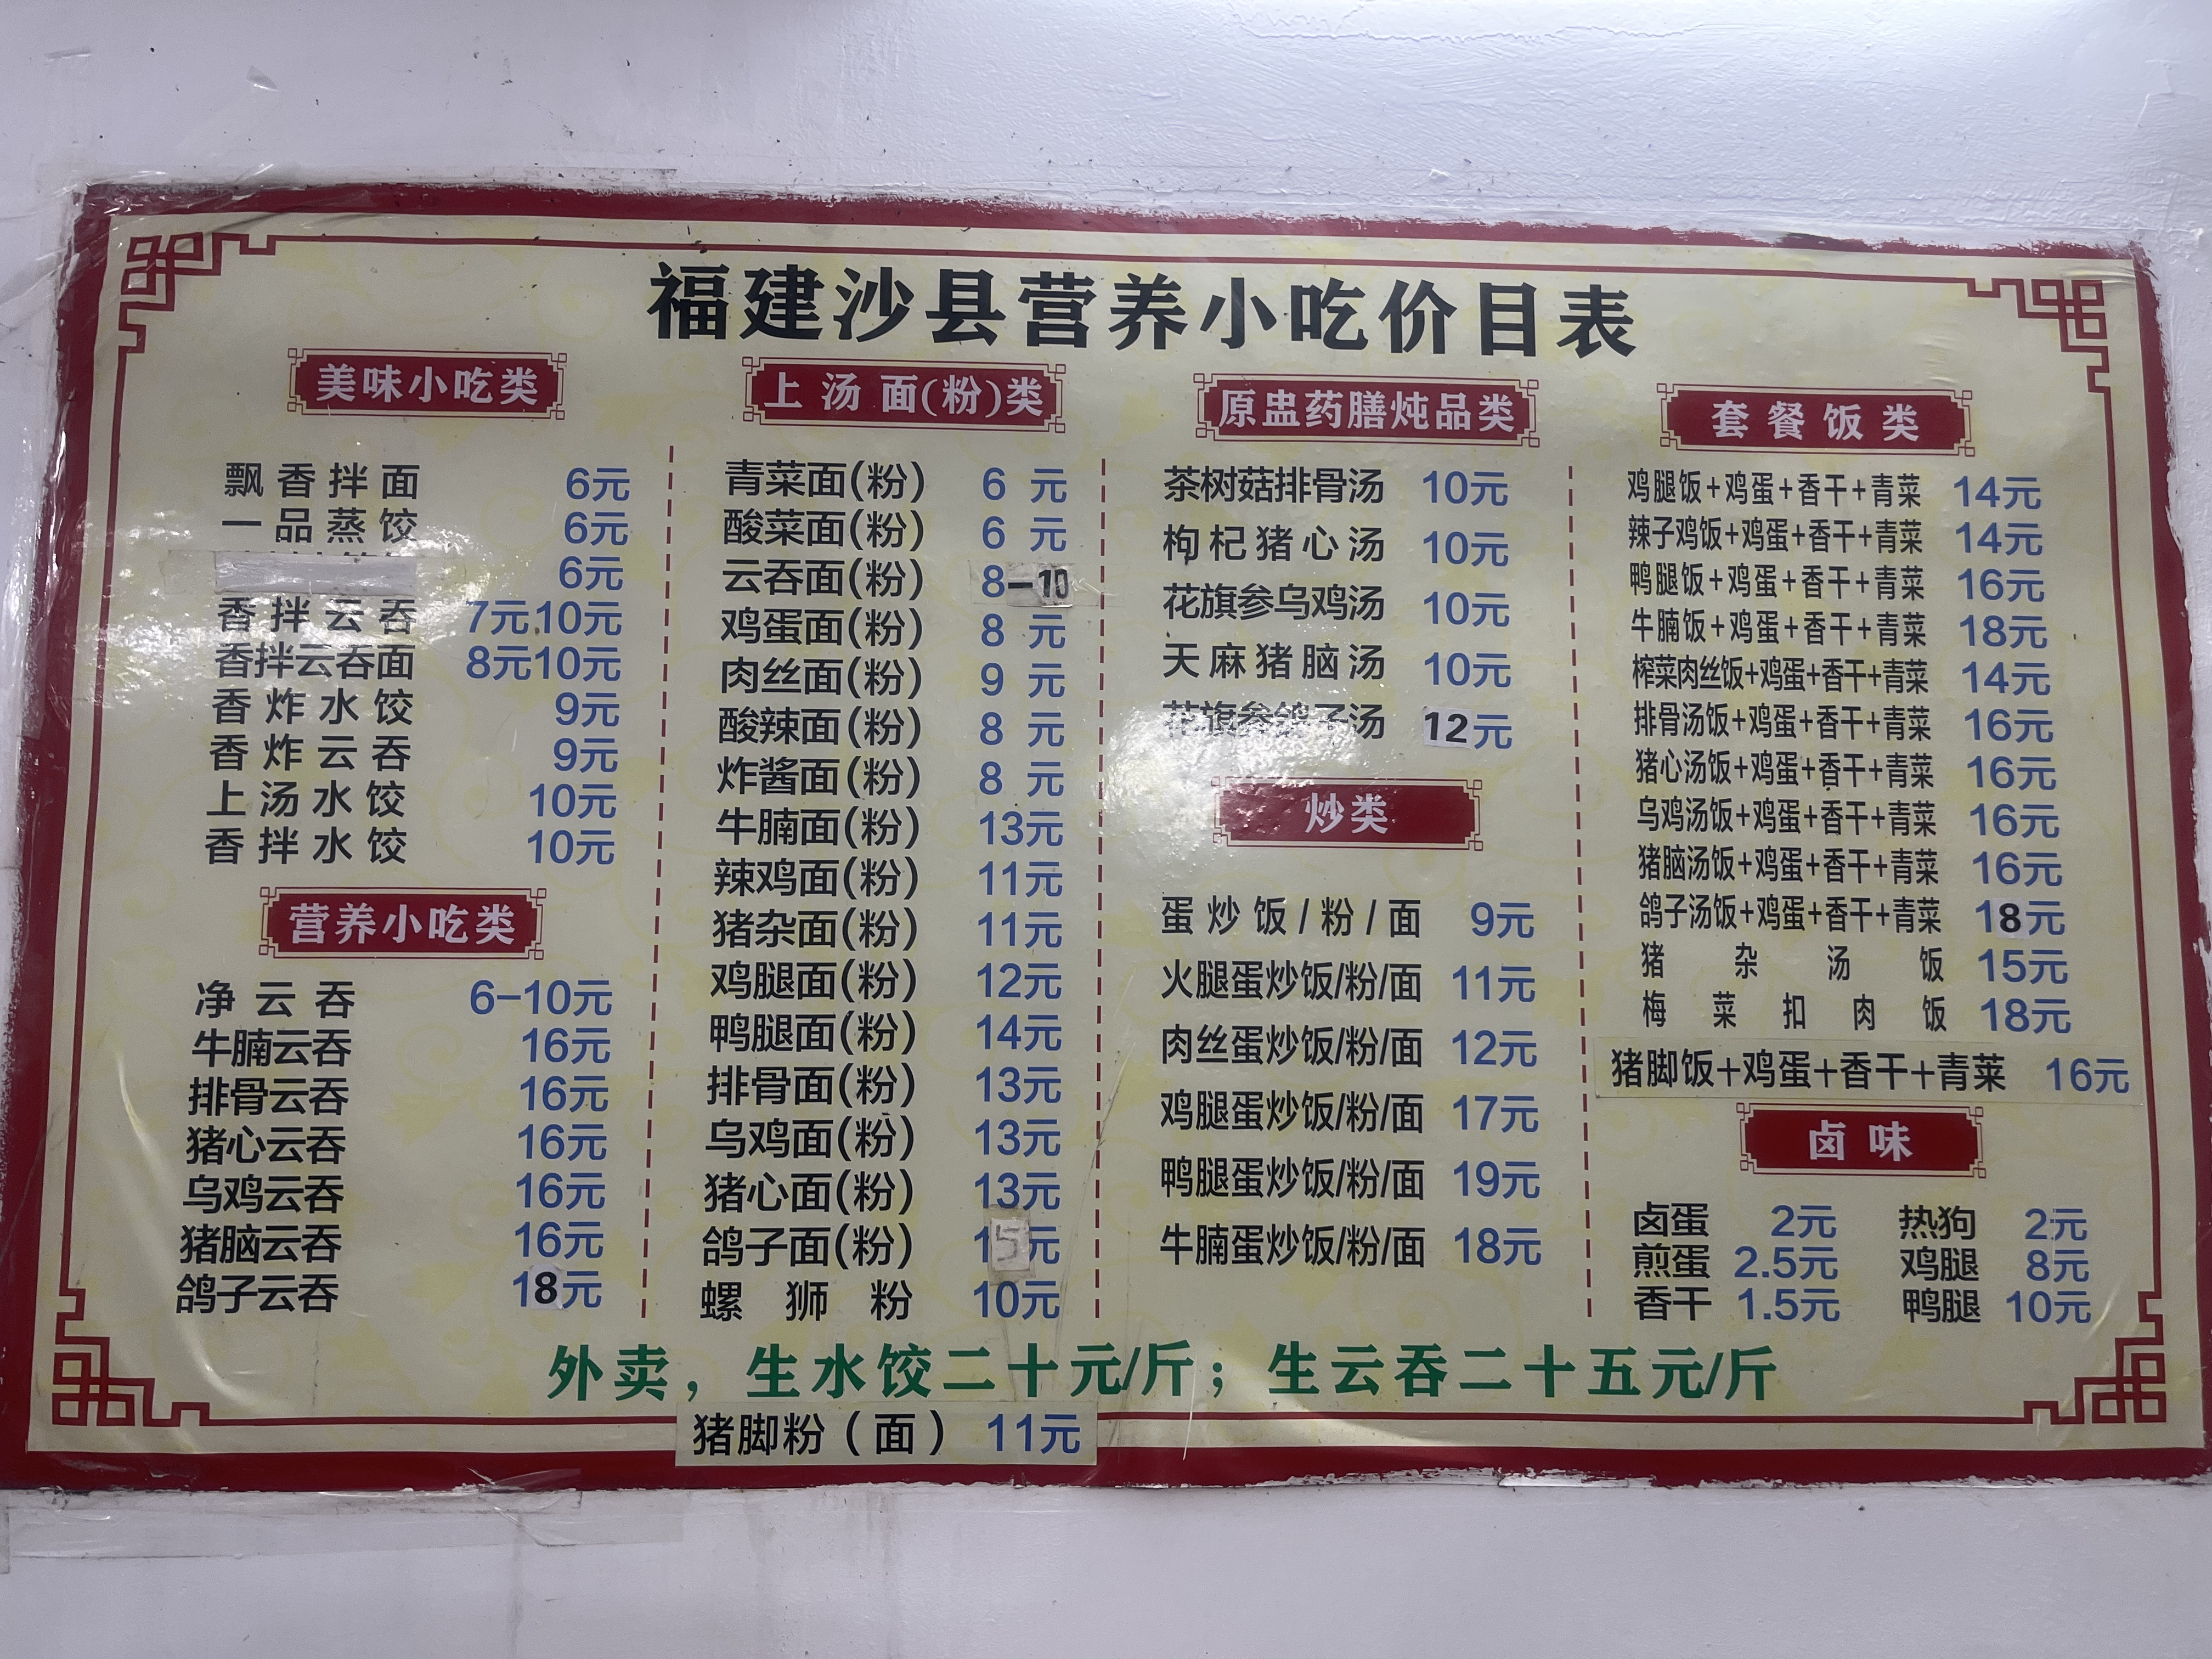 福建沙县营养小吃价目表
美味小吃类
飘香拌面 6元
一品蒸饺 6元
6元
香拌云吞 7元10元
香拌云吞面 8元10元
香炸水饺 9元
香炸云吞 9元
上汤水饺 10元
香拌水饺 10元
营养小吃类
净云吞 6-10元
牛腩云吞 16元
排骨云吞 16元
猪心云吞 16元
乌鸡云吞 16元
猪脑云吞 16元
鸽子云吞 18元
上汤面(粉)类
青菜面(粉) 6元
酸菜面(粉) 6元
云吞面(粉) 8-10
鸡蛋面(粉) 8元
肉丝面(粉) 9元
酸辣面(粉) 8元
炸酱面(粉) 8元
牛腩面(粉) 13元
辣鸡面(粉) 11元
猪杂面(粉) 11元
鸡腿面(粉) 12元
鸭腿面(粉) 14元
排骨面(粉) 13元
乌鸡面(粉) 13元
猪心面(粉) 13元
鸽子面(粉) 15元
螺狮粉 10元
原盅药膳炖品类
茶树菇排骨汤 10元
枸杞猪心汤 10元
花旗参乌鸡汤 10元
天麻猪脑汤 10元
花旗参鸽子汤 12元
炒类
蛋炒饭/粉/面 9元
火腿蛋炒饭/粉/面 11元
肉丝蛋炒饭/粉/面 12元
鸡腿蛋炒饭/粉/面 17元
鸭腿蛋炒饭/粉/面 19元
牛腩蛋炒饭/粉/面 18元
套餐饭类
鸡腿饭+鸡蛋+香干+青菜 14元
辣子鸡饭+鸡蛋+香干+青菜 14元
鸭腿饭+鸡蛋+香干+青菜 16元
牛腩饭+鸡蛋+香干+青菜 18元
榨菜肉丝饭+鸡蛋+香干+青菜 14元
排骨汤饭+鸡蛋+香干+青菜 16元
猪心汤饭+鸡蛋+香干+青菜 16元
乌鸡汤饭+鸡蛋+香干+青菜 16元
猪脑汤饭+鸡蛋+香干+青菜 16元
鸽子汤饭+鸡蛋+香干+青菜 18元
猪杂汤饭 15元
梅菜扣肉饭 18元
猪脚饭+鸡蛋+香干+青菜 16元
卤味
卤蛋 2元 热狗 2元
煎蛋 2.5元 鸡腿 8元
香干 1.5元 鸭腿 10元
外卖，生水饺二十元/斤；生云吞二十五元/斤
猪脚粉（面） 11元